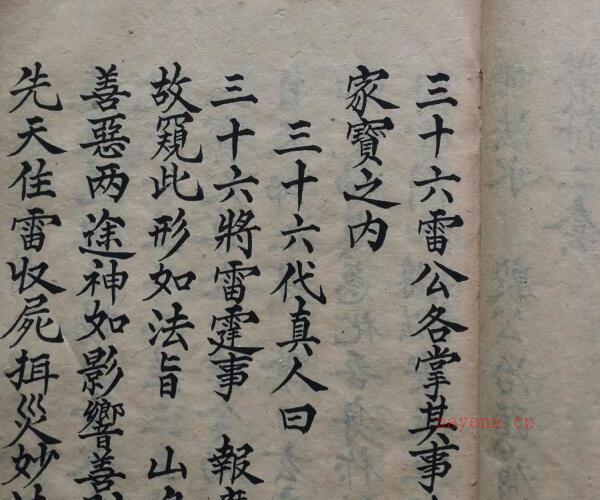 三十六雷公各掌其事
家寶之内
三十六代真人曰
三十六將雷霆事 報
故窺此形如法旨 山
善惡两途神如影響善
先天住雷收屍揖災妙
nayona.cn